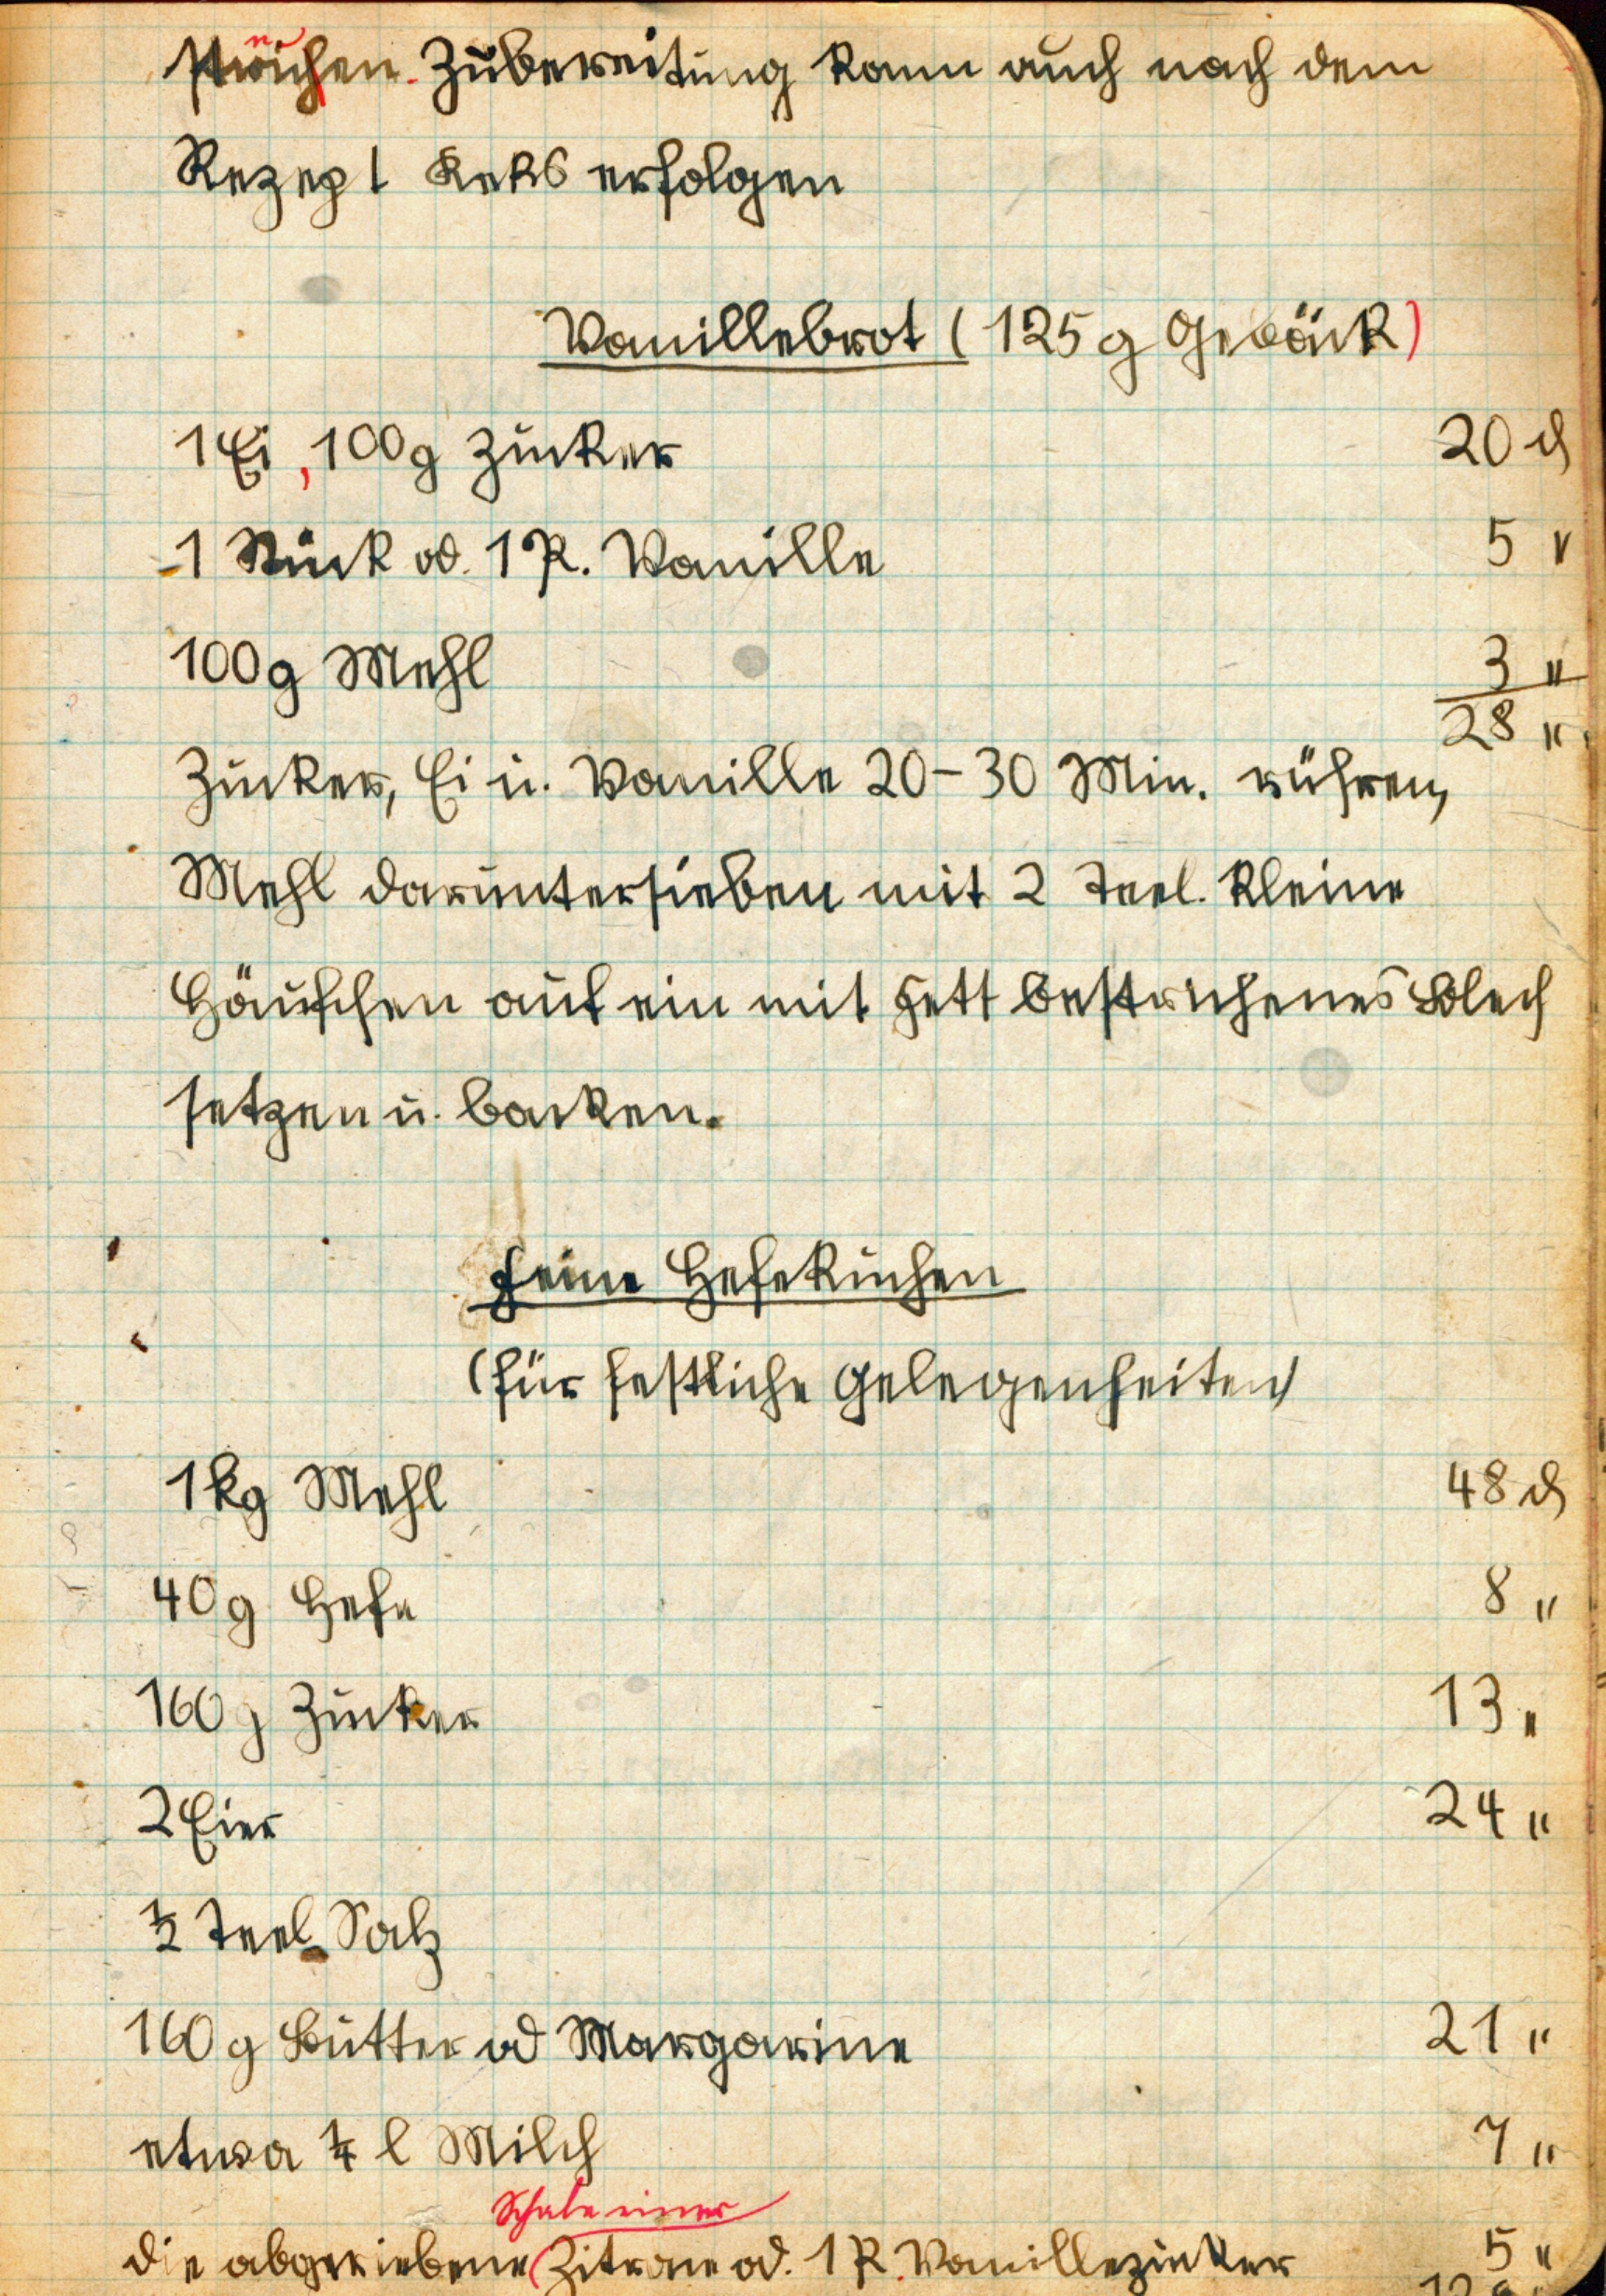 streichen. Zubereitung kann auch nach dem
Rezept Keks erfolgen
Vanillebrot (125 g Gebäck)
1 Ei, 100 g Zucker 20 ₰
1 Stück od. 1 P. Vanille 5 "
100 g Mehl 3 "
28 "
Zucker, Ei u. Vanille 20-30 Min. rühren,
Mehl daruntersieben mit 2 Teel. kleine
Häufchen auf ein mit Fett bestrichenes Blech
setzen u. backen.
Feine Hefekuchen
(für festliche Gelegenheiten)
1 kg Mehl 48 ₰
40 g Hefe 8 "
160 g Zucker 13 "
2 Eier 24 "
½ Teel. Salz
160 g Butter od Margarine 21 "
etwa ¼ l Milch 7 "
Schale einer
die abgeriebene Zitrone od. 1 P. Vanillezucker 5 "